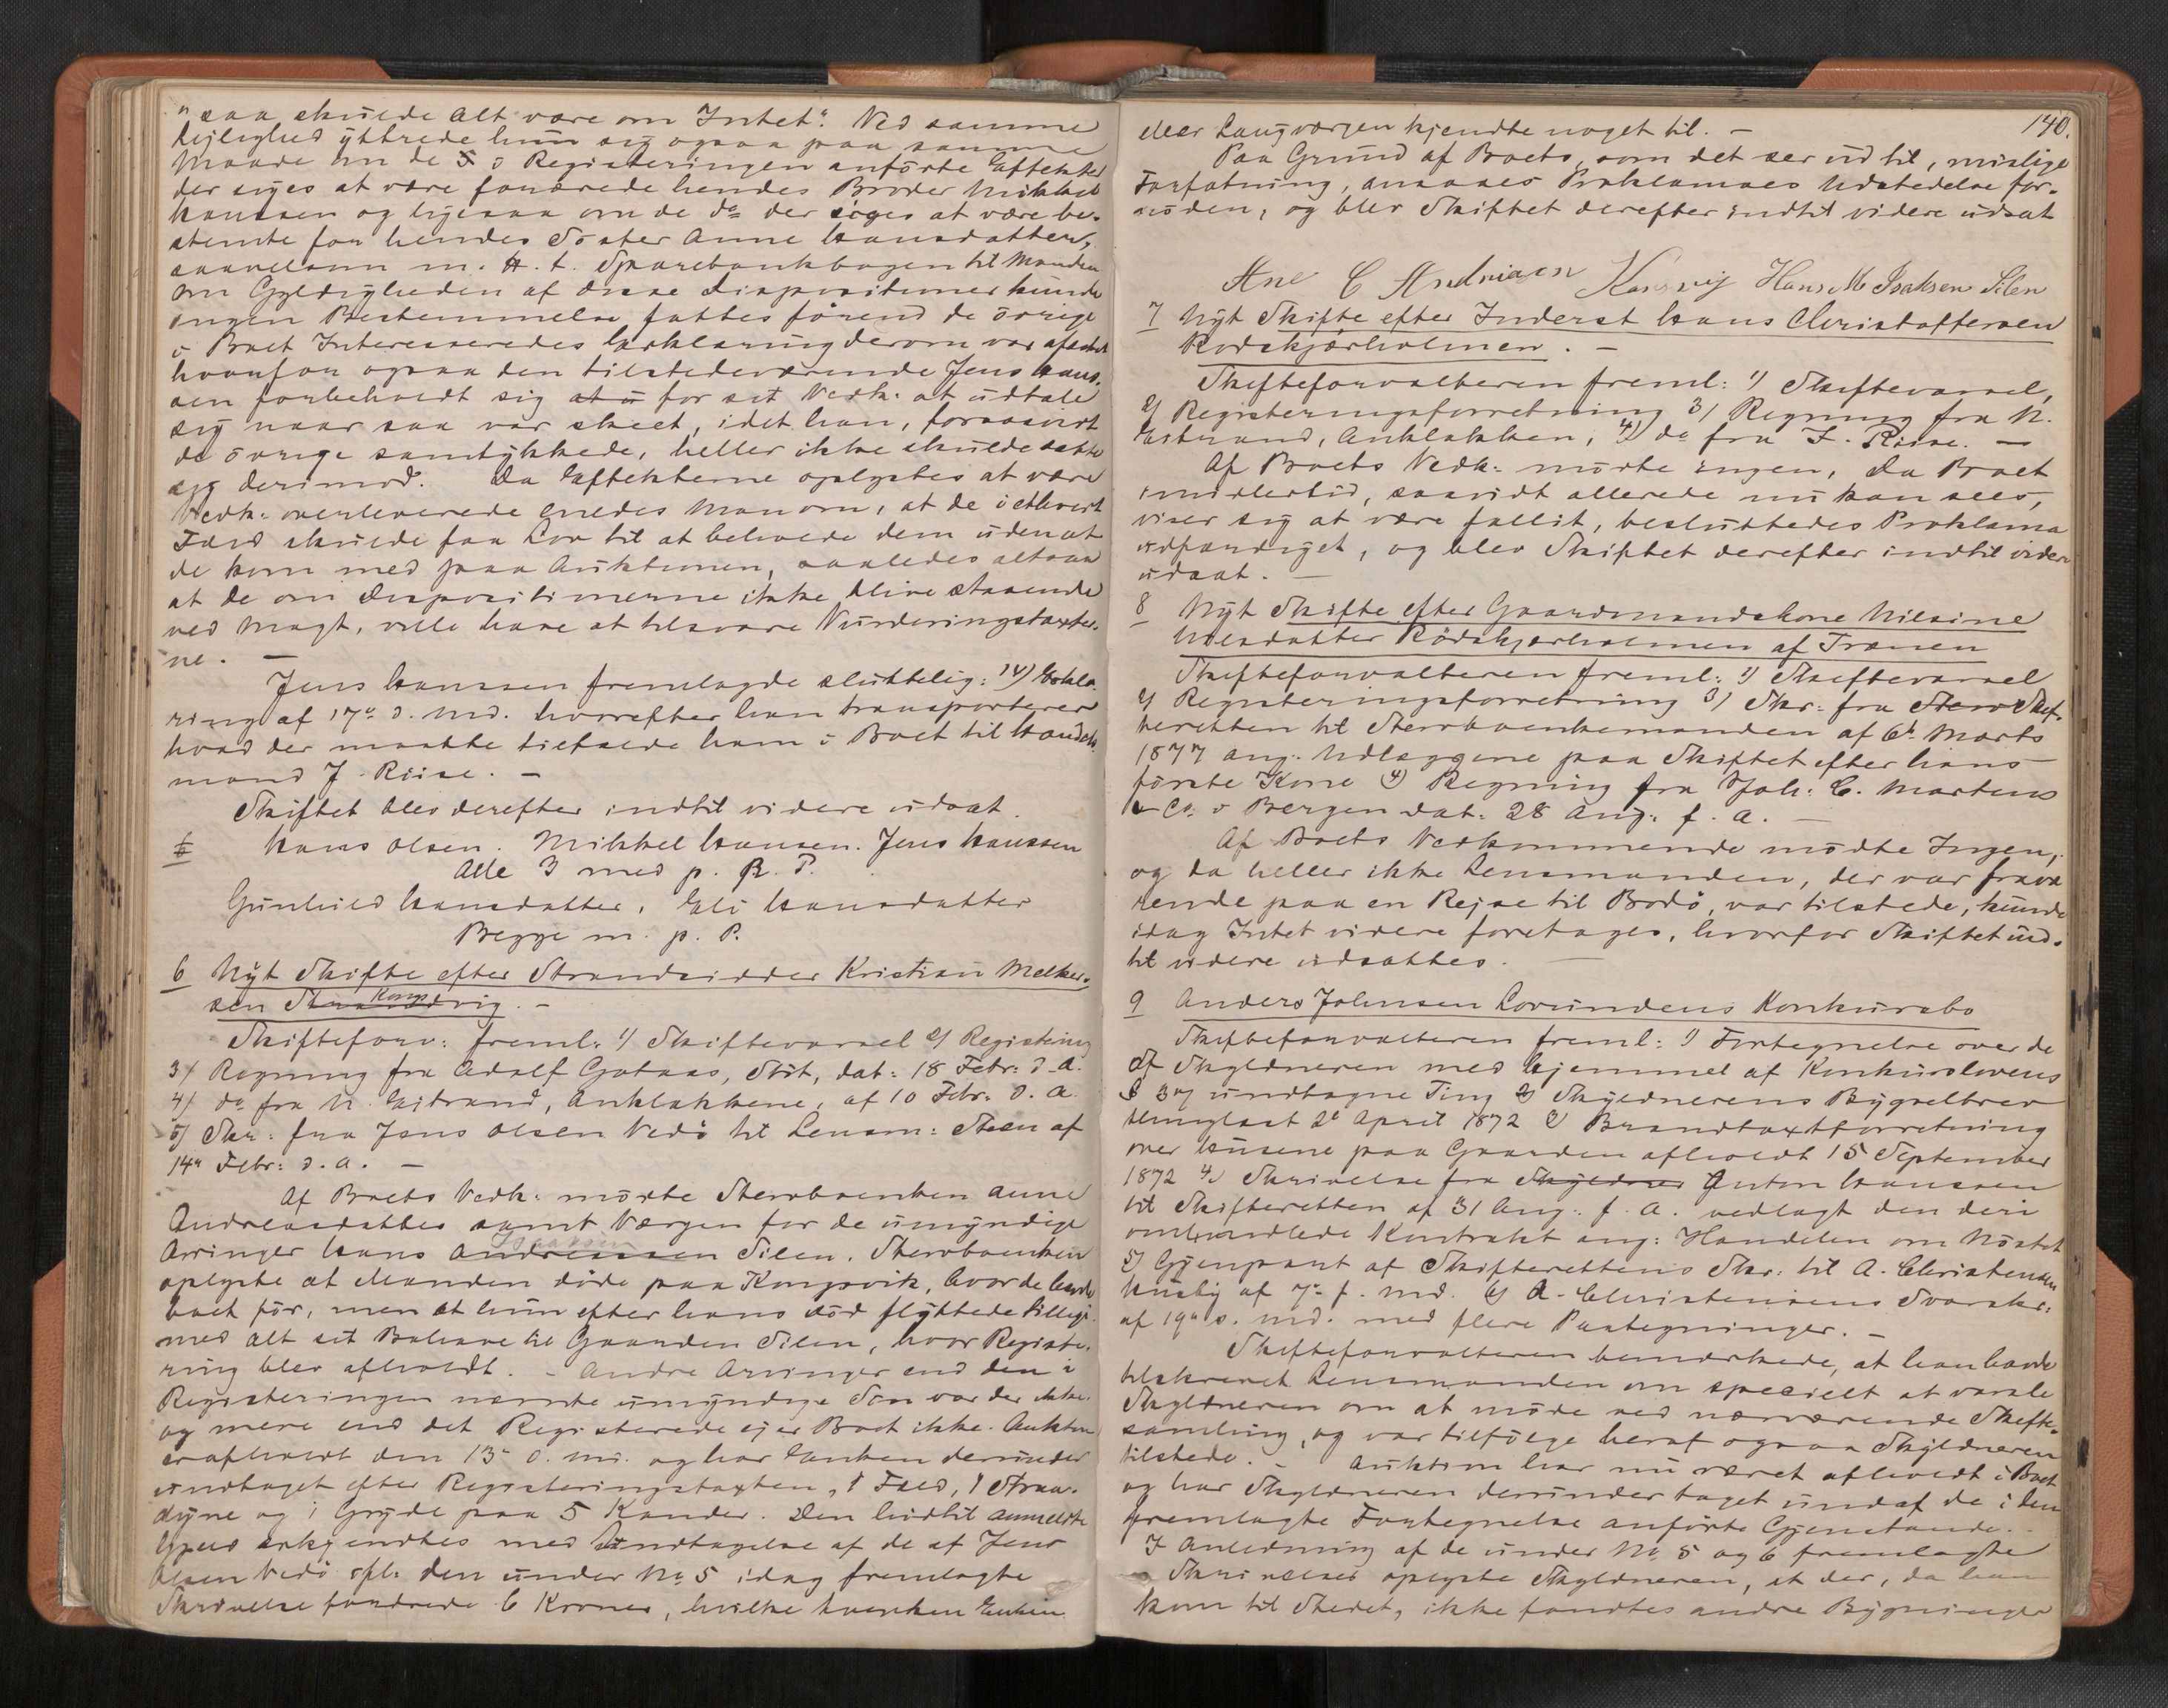 "saa skulde Alt være om Intet". Ved samme
Lejlighed yttrede hun sig ogsaa paa samme
Maade om de 5 i Registeringen anførte Effekter
der siges at være forærede hendes Broder Mikkel
Hanssen og ligesaa om de do der siges at være be-
stemte for hendes Søster Anne Hansdatter,
saavelsom m. H. t. Sparebankbogen til Manden
Om Gyldigheden af disse Dispositioner kunde
ingen Bestemmelse fattes førend de øvrige
i Boet Interesseredes Erklæring derom var afæsket
hvorfor ogsaa den tilstedeværende Jens Hans-
sen forbeholdt sig at u for sit Vedk: at udtale
sig naar saa var skeet, idet han, forsaavidt
de øvrige samtykkede, heller ikke skulde sætte
sig derimod. Da Effekterne oplystes at være
Vedk: overleverede enedes Man om, at de i ethvert
Fald skulde faa Lov til at beholde dem uden at
de kom med paa Auktionen, saaledes altsaa
at de om Dispositionerne ikke blive staaende
ved Magt, ville have at tilsvare Vurderingstaxter-
ne. —
Jens Hanssen fremlagde sluttelig: 14) Erklæ-
ring af 17de d. Md. hvorefter han transporterer
hvad der maatte tilfalde ham i Boet til Handels-
mand J. Riise. —
Skiftet blev derefter indtil videre udsat.
6 Hans Olsen. Mikkel Hansen. Jens Hanssen
Alle 3 med p. P.
Gunhild Hansdatter, Eli Hansdatter
Begge m. p. P.
6 Nyt Skifte efter Strandsidder Kristian Melker-
sen Kongsvig. —
Skifteforv: freml: 1) Skiftevarsel 2) Registering
3) Regning fra Adolf Gotaas, Stit, dat: 18 Febr: d. A.
4) do fra N. Estrand, Anklakkene, af 10 Febr: d. A.
5) Skr: fra Jens Olsen Vedø til Lensm: Steen af
14de Febr: d. A. —
Af Boets Vedk: mødte Stervboenken Anne
Andreasdatter samt Værgen for de umyndige
Arvinger Hans Andreassen Isaksen Silen. Stervboenken
oplyste at Manden døde paa Kongsvik, hvor de havde
boet før, men at hun efter hans Død flyttede tillige-
med alt sit Bohave til Gaarden Silen, hvor Registe-
ring blev afholdt. – Andre Arvinger end den i
Registeringen nævnte umyndige Søn var der ikke
og mere end det Registerede ejer Boet ikke. Auktion
er afholdt den 13de d. Md. og har Enken derunder
undtaget efter Registeringstaxten, 1 Fæld, 1 Straa-
dyne og 1 Gryde paa 5 Kander. Den hidtil anmeldte
Gjeld erkjendtes med Undtagelse af de af Jens
Olsen Vedø ifl: den under No 5 idag fremlagte
Skrivelse fordrede 6 Kroner, hvilke hverken Enken
140.
eller Laugværgen kjendte noget til. —
Paa Grund af Boets, som det ser ud til, mislige
Forfatning, ansaaes Proklamaes Udstedelse for-
nøden, og blev Skiftet derefter indtil videre udsat
Ane C Andriasen Kongsvig Hans M Isaksen Silen
7 Nyt Skifte efter Inderst Hans Christoffersen
Rødskjærholmen. —
Skifteforvalteren freml: 1) Skiftevarsel,
2) Registeringsforretning 3) Regning fra N.
Estrand, Anklakken, 4) do fra J. Riise. —
Af Boets Vedk: mødte ingen, Da Boet
imidlertid, saavidt allerede nu kan sees,
viser sig at være fallit, besluttedes Proklama
udfærdiget, og blev Skiftet derefter indtil videre
udsat. —
8 Nyt Skifte efter Gaardmandskone Nilsine
Nilsdatter Rødskjærholmen af Trænen
Skifteforvalteren freml: 1) Skiftevarsel
2) Registeringsforretning 3) Skr: fra Skif-
teretten til Stervboenkemanden af 6te Marts
1877 ang: Udlæggene paa Skiftet efter hans
første Kone 4) Regning fra Joh: C. Martens
& Co i Bergen dat: 28 Aug: f. A. —
Af Boets Vedkommende mødte Ingen,
og da heller ikke Lensmanden, der var fravæ-
rende paa en Rejse til Bodø, var tilstede, kunde
idag Intet videre foretages, hvorfor Skiftet ind-
til videre udsattes. —
9 Anders Johnsen Lovundens Konkursbo
Skifteforvalteren freml: 1) Fortegnelse over de
af Skyldneren med Hjemmel af Konkurslovens
§ 37 undtagne Ting 2) Skyldnerens Bygselbrev
thinglæst 2de April 1872 3) Brandtaxtforretning
over Husene paa Gaarden afholdt 15 September
1872 4) Skrivelse fra Skyldner Anton Hanssen
til Skifteretten af 31 Aug: f. A. vedlagt den deri
omhandlede Kontrakt ang: Handelen om Nøstet
5) Gjenpart af Skifterettens Skr: til A. Christensen
Husby af 7de f. Md. 6) A. Christensens Svarskr:
af 19de s. Md. med flere Paategninger. —
Skifteforvalteren bemærkede, at han havde
tilskrevet Lensmanden om specielt at varsle
Skyldneren om at møde ved nærværende Skifte-
samling, og var tilfølge heraf ogsaa Skyldneren
tilstede. – Auktion har nu været afholdt i Boet
og har Skyldneren derunder taget undaf de i den
fremlagte Fortegnelse anførte Gjenstande. –
I Anledning af de under No 5 og 6 fremlagte
Skrivelser oplyste Skyldneren, at der, da han
kom til Stedet, ikke fandtes andre Bygninger